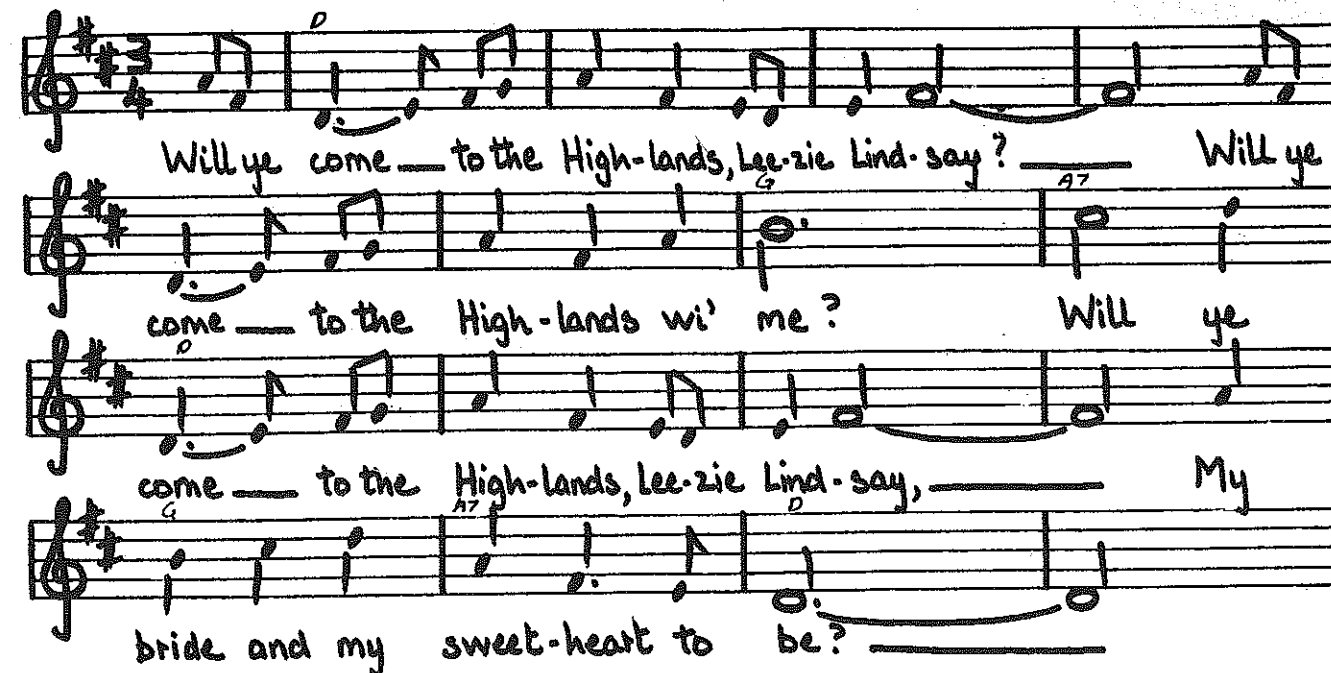 D
3
4
Will ye come — to the High-lands, Lee-zie Lind-say? — Will ye
G A7
come — to the High-lands wi' me? Will ye
D
come — to the High-lands, Lee-zie Lind-say, — My
G A7 D
bride and my sweet-heart to be? —